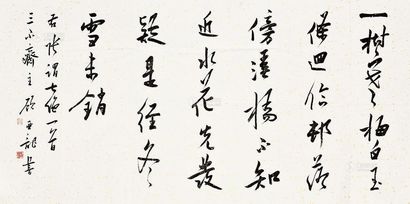 一樹寒梅白玉
條迥臨邨路
傍溪橋不知
近水花先發
疑是經冬
雪未銷
右張謂七絕一首
三不齋主顧亞龍書